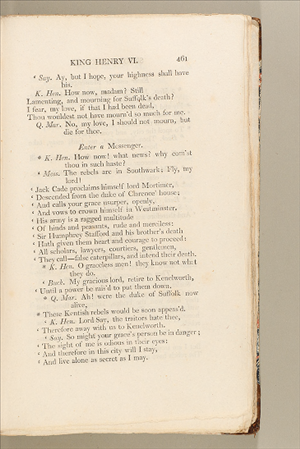 KING HENRY VI. 461
‘ Say. Ay, but I hope, your highness shall have
his.
K. Hen. How now, madam? Still
Lamenting, and mourning for Suffolk's death?
I fear, my love, if that I had been dead,
Thou wouldest not have mourn'd so much for me.
Q. Mar. No, my love, I should not mourn, but
die for thee.
Enter a Messenger.
* K. Hen. How now! what news? why com'st
thou in such haste?
‘ Mess. The rebels are in Southwark; Fly, my
lord!
‘ Jack Cade proclaims himself lord Mortimer,
‘ Descended from the duke of Clarence' house;
‘ And calls your grace usurper, openly,
‘ And vows to crown himself in Westminster.
‘ His army is a ragged multitude
‘ Of hinds and peasants, rude and merciless:
‘ Sir Humphrey Stafford and his brother's death
‘ Hath given them heart and courage to proceed:
‘ All scholars, lawyers, courtiers, gentlemen,
‘ They call—false caterpillars, and intend their death.
* K. Hen. O graceless men! they know not what
they do.
‘ Buck. My gracious lord, retire to Kenelworth,
‘ Until a power be rais'd to put them down.
* Q. Mar. Ah! were the duke of Suffolk now
alive,
* These Kentish rebels would be soon appeas'd.
‘ K. Hen. Lord Say, the traitors hate thee,
‘ Therefore away with us to Kenelworth.
‘ Say. So might your grace's person be in danger;
‘ The sight of me is odious in their eyes:
‘ And therefore in this city will I stay,
‘ And live alone as secret as I may.